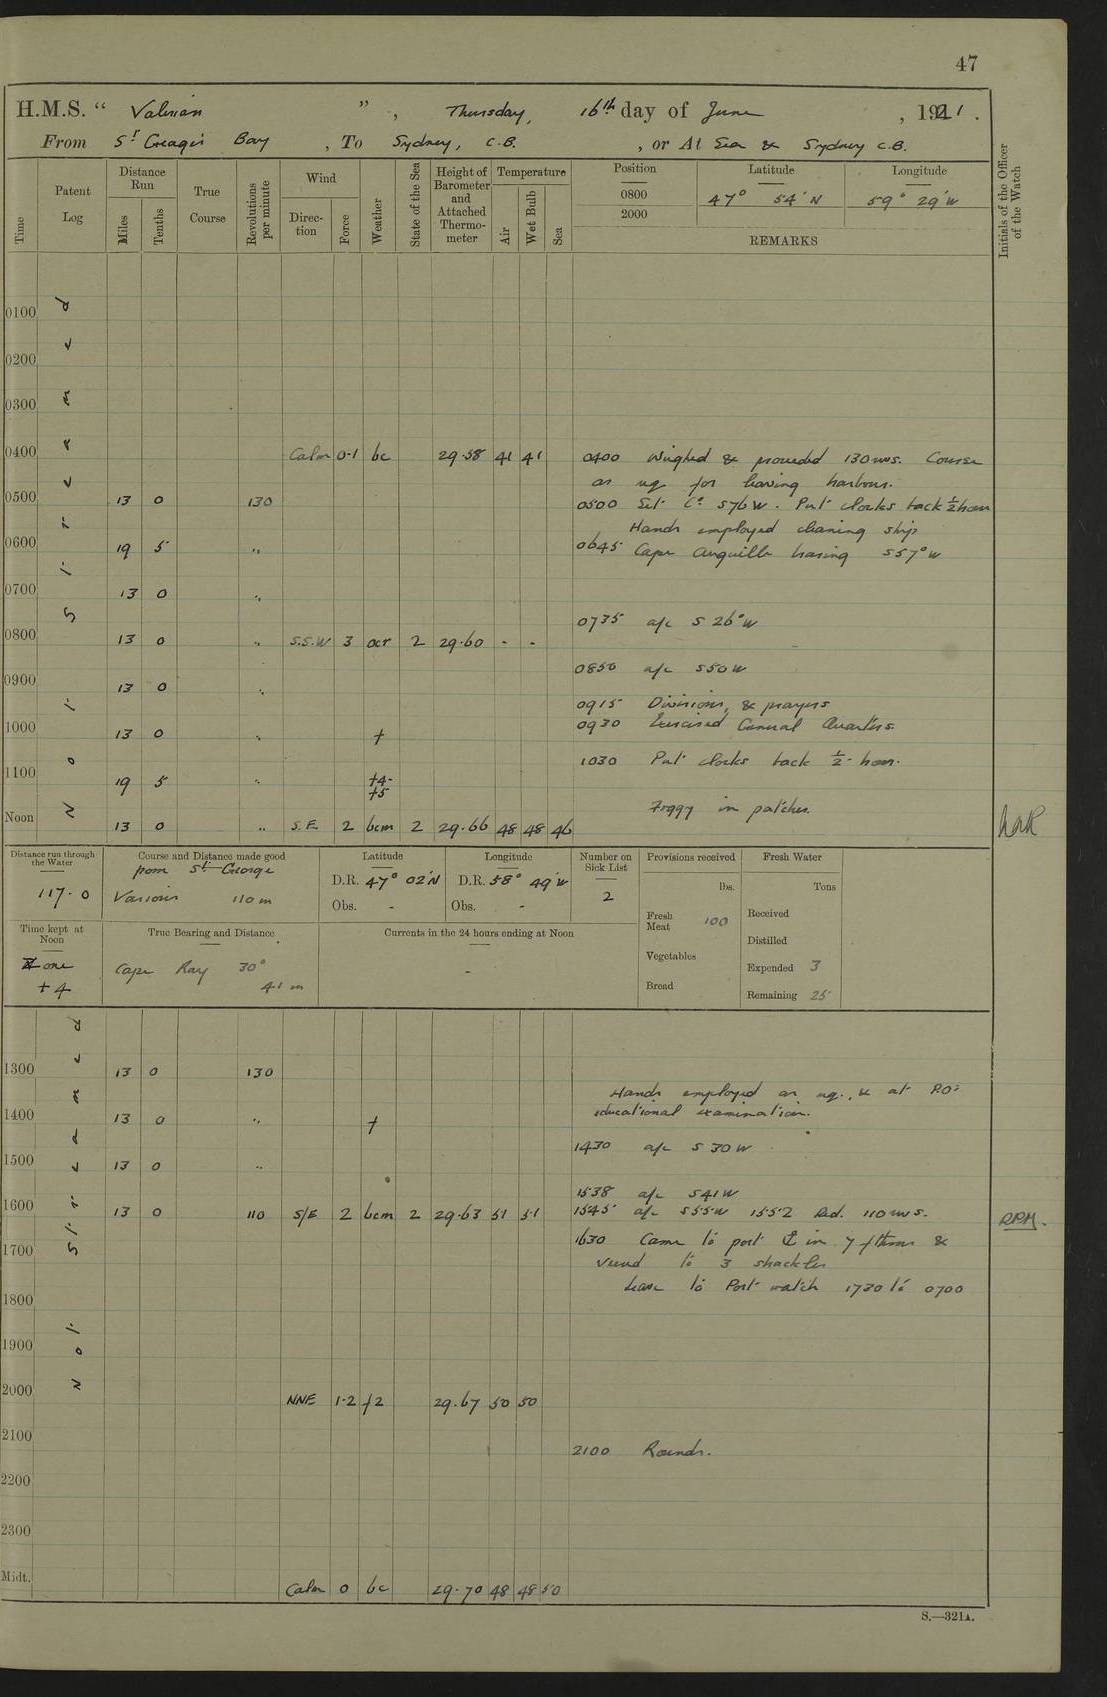 47
H.M.S. " Valerian ", Thursday, 16th day of June, 1921.
From St George's Bay, To Sydney, C.B., or At Sea & Sydney C.B.
Time
Patent Log
Distance Run
Miles
Tenths
True Course
Revolutions per minute
Wind
Direction
Force
Weather
State of the Sea
Height of Barometer and Attached Thermometer
Temperature
Air
Wet Bulb
Sea
Position Latitude Longitude
0800 47° 54' N 59° 29' W
2000
REMARKS
Initials of the Officer of the Watch
Not Streamed
0100
0200
0300
0400 Calm 0-1 bc 29.58 41 41 0400 Weighed & proceeded 130 revs. Course
as req for leaving harbour.
0500 13 0 130 0500 Set Co S76W. Put clocks back ½ hour
Hands employed cleaning ship
0600 19 5 " 0645 Cape Anguille bearing S57°W
0700 13 0 "
0735 a/c S26°W
0800 13 0 " S.S.W 3 ocr 2 29.60 - -
0850 a/c S50W
0900 13 0 "
0915 Divisions, & prayers
0930 Exercised General Quarters.
1000 13 0 " f
1030 Put clocks back ½ hour.
1100 19 5 " f4-
f5
Foggy in patches.
Noon 13 0 " S.E. 2 bcm 2 29.66 48 48 46
Distance run through the Water
117.0
Course and Distance made good
from St George
Various 110 m
Latitude
D.R. 47° 02'N
Obs. -
Longitude
D.R. 58° 49'W
Obs. -
Number on Sick List
2
Provisions received
lbs.
Fresh Meat 100
Vegetables
Bread
Fresh Water
Tons
Received
Distilled
Expended 3
Remaining 25
Time kept at Noon
Zone
+4
True Bearing and Distance
Cape Ray 30°
41 m
Currents in the 24 hours ending at Noon
-
Not Streamed
1300 13 0 130
Hands employed as req., & at P.O's
1400 13 0 " f educational examination.
1430 a/c S30W
1500 13 0 "
1538 a/c S41W
1600 13 0 110 S/E 2 bcm 2 29.63 51 51 1545 a/c S55W 1552 Red. 110 revs.
RPM.
1630 Came to port ⚓ in 7 fthms &
1700 veered to 3 shackles
Leave to Port watch 1730 to 0700
1800
1900
2000 NNE 1-2 f2 29.67 50 50
2100 2100 Rounds.
2200
2300
Midt. Calm 0 bc 29.70 48 48 50
S.—321A.